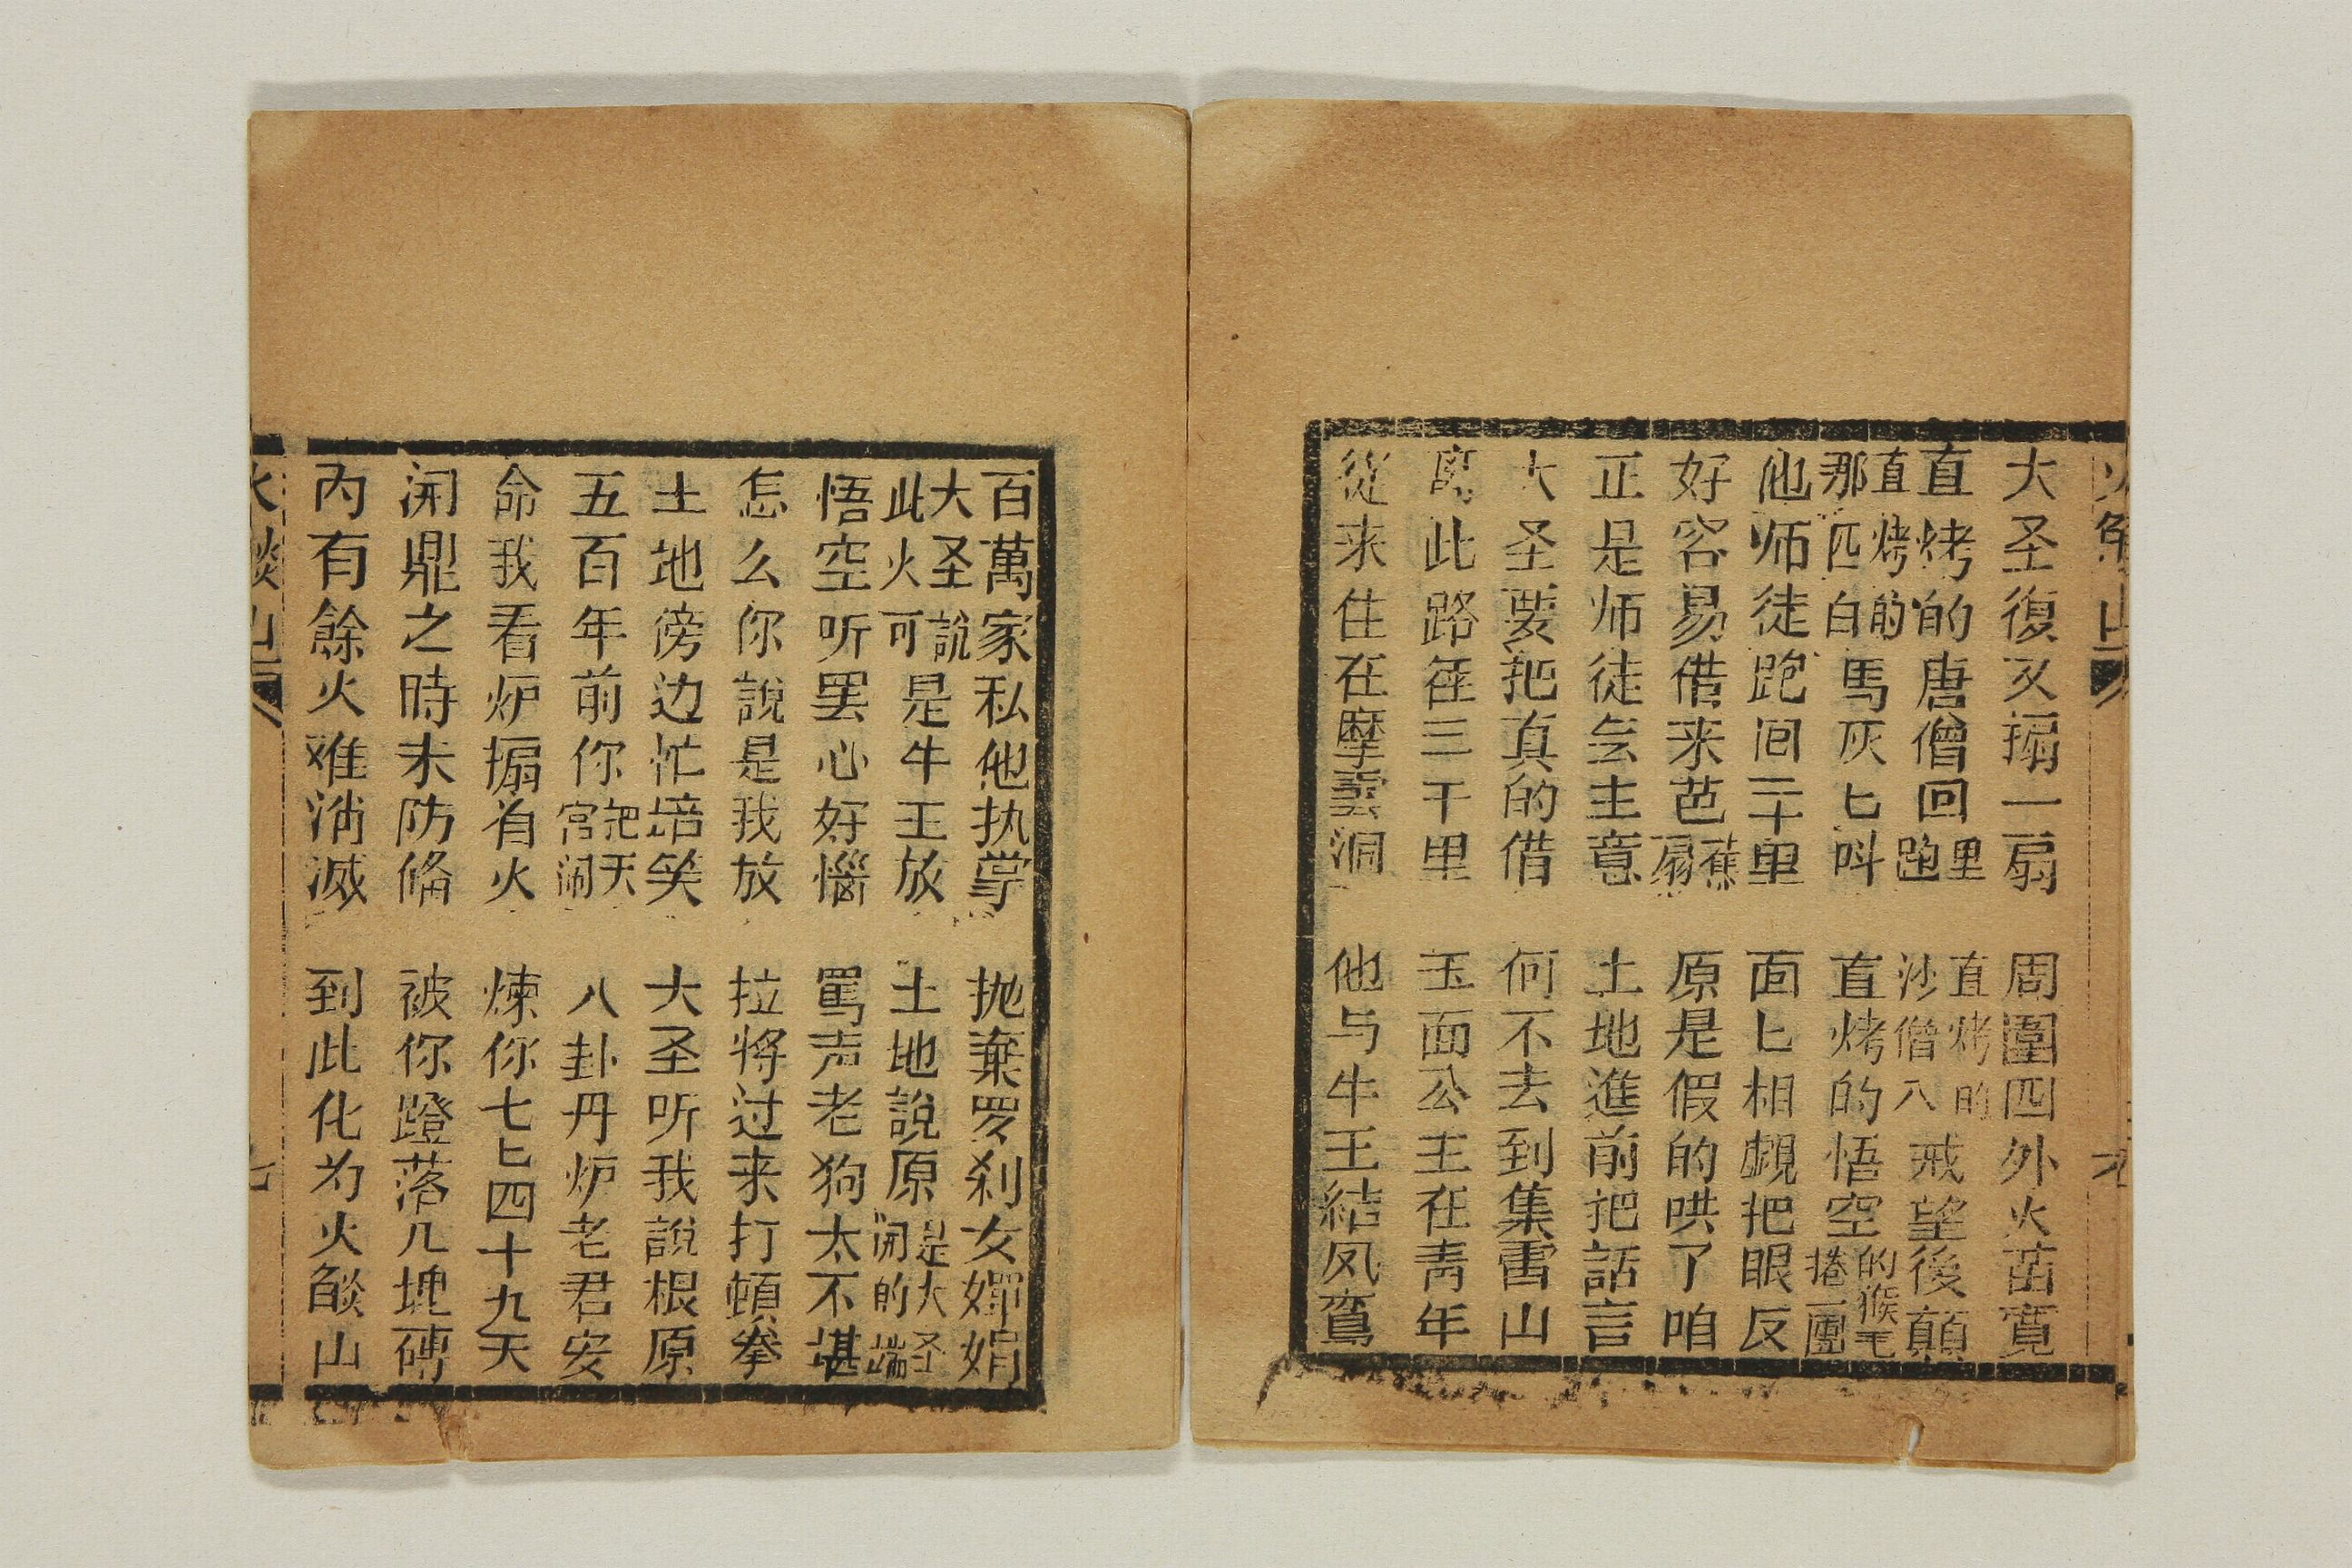 大圣復又搧一扇　周圍四外火苗寬
直烤的唐僧回里跑　直烤的沙僧八戒望後顛
直烤的那匹白馬灰匕叫　直烤的悟空的猴毛捲一團
他师徒跑囬二十里　面匕相覷把眼反
好容易借来芭蕉扇　原是假的哄了咱
正是师徒无主意　土地進前把話言
大圣要把真的借　何不去到集雷山
离此路径三千里　玉面公主在青年
從来住在摩雲洞　他与牛王結凤鸞
百萬家私他执掌　抛棄罗刹女嬋娟
大圣說此火可是牛王放　土地說原是大圣闹的端
悟空听罢心好惱　罵声老狗太不堪
怎么你說是我放　拉将过来打頓拳
土地傍边忙培笑　大圣听我說根原
五百年前你把天宮闹　八卦丹炉老君安
命我看炉搧着火　煉你七匕四十九天
闹鼎之時未防俻　被你蹬落几塊磚
內有餘火难消滅　到此化为火燄山
火燄山
七